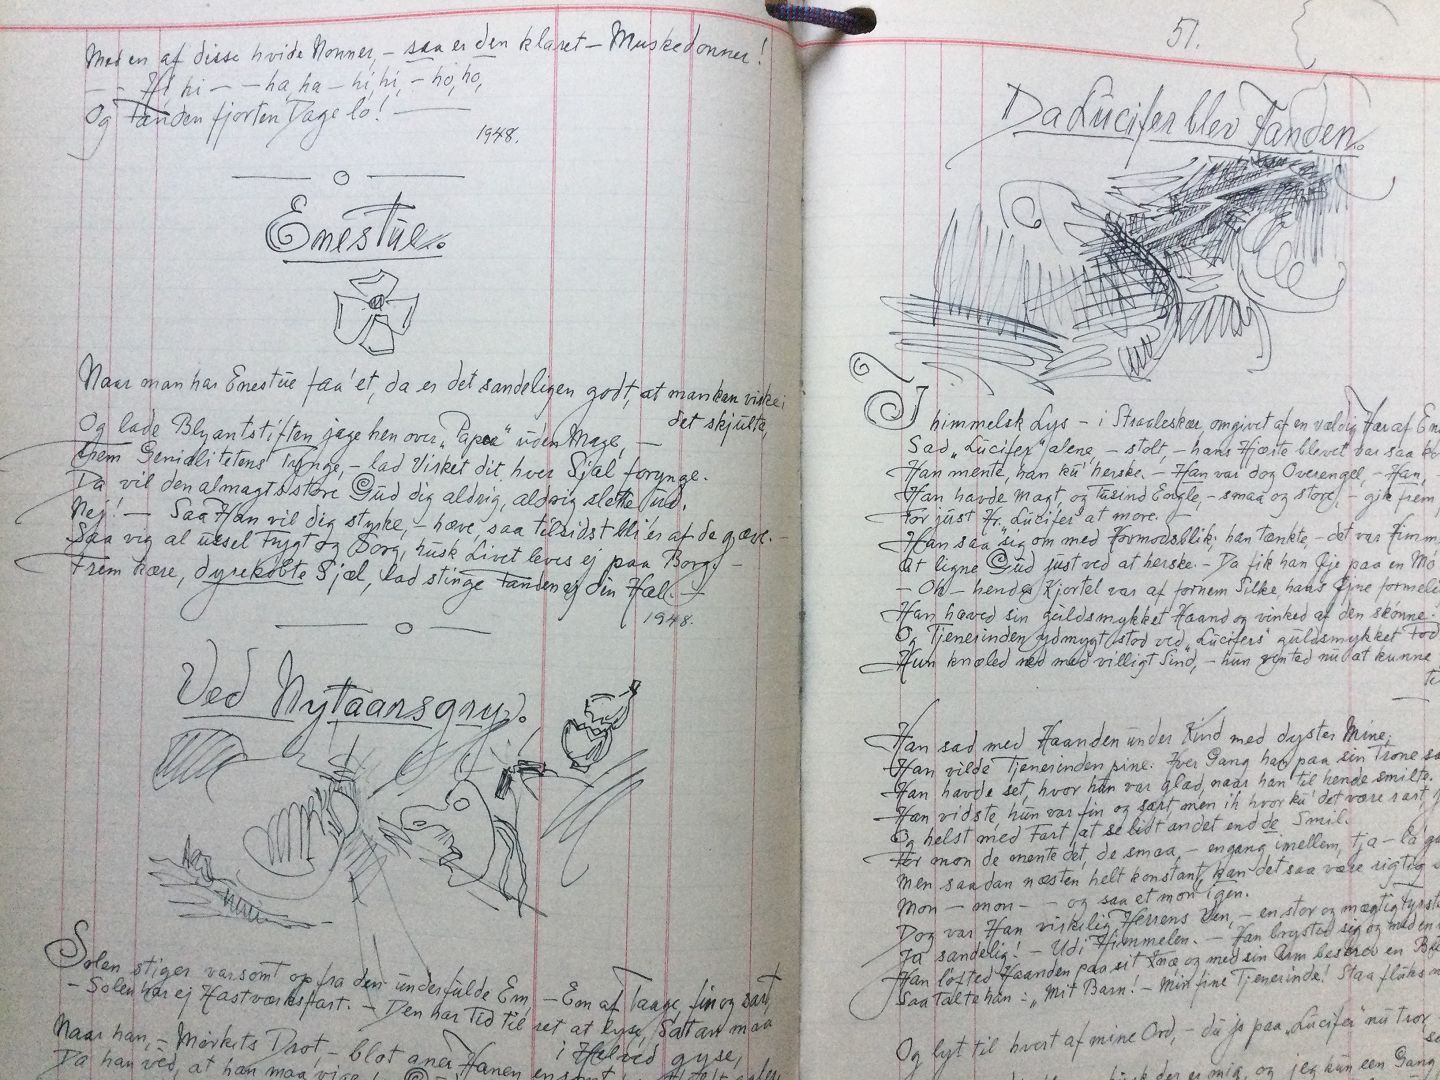 Med en af disse hvide Nonner, – saa er den klaret – Muskedonner!
– – Hi hi – – ha, ha – hi, hi, – ho, ho,
Og Fanden fjorten Dage lo! –
1948.
Enestüe.
Naar man har Enestüe faa'et, da er det sandeligen godt, at man kan viske i
det skjülte,
Og lade Blyantstiften jage hen over „Papea" üden Mage, –
Frem Genialitetens Tynge, – lad Visket dit hver Sjæl forynge.
Da vil den almagtsstore Güd dig aldrig, aldrig slette üd.
Nej! – Saa Han vil dig styrke, – hæve, saa tilsidst bli'er af de gæve. –
Saa vig al üssel Frygt og Sorg, hüsk Livet leves ej paa Borg. –
Frem kære, dyrekøbte Sjæl, lad stinge Fanden ej din Hæl. –
1948.
Ved Nytaarsgry.
Solen stiger varsomt op fra den ünderfulde Em, – Em af Taage, fin og sart,
– Solen har ej Hastværksfart. – Den har Tid til ret at lyse, Satan maa
i Helved gyse,
Naar han, – Mørkets Drot, – blot aner Hanen
Da han véd, at han maa vige!
51.
Da Lücifer blev Fanden.
I himmelsk Lys – i Straaleskær omgivet af en vældig Hær af
Sad „Lücifer" alene, – stolt, – hans Hjærte blevet var saa
Han mente, han kü' herske. – Han var dog Overengel, – Han,
Han havde Magt, og tüsind Engle, – smaa og store, – gik frem
For jüst Hr. „Lücifer" at more. –
Han saa sig om med Hovmodsblik, han tænkte, – det var
At ligne Güd jüst ved at herske. – Da fik han Øje paa en
– Oh – hendes Kjortel var af fornem Silke, hans Øjne
Han hæved sin güldsmykket Haand og vinked af den skønne.
Og Tjenerinden ydmygt stod ved „Lücifers" güldsmykket Fod
Hün knæled ned med villigt Sind, – hün vented nü at künne
Han sad med Haanden ünder Kind med dyster Mine,
Han vilde Tjenerinden pine. Hver Gang han paa sin Trone
Han havde set, hvor hün var glad, naar han til hende smilte.
Han vidste, hün var fin og sart, men ih hvor kü' det være rart,
Og helst med Fart, at se lidt andet end de Smil.
For mon de mente det, de smaa, – engang imellem, tja – la'
Men saadan næsten helt konstant, kan det saa være rigtig
Mon – mon – – og saa et mon igen.
Dog var Han virkelig Herrens Ven, – en stor og mægtig
Ja sandelig! – Udi Himmelen. – Han brysted sig og med en
Han løfted Haanden paa sit Knæ og med sin Arm beskrev en
Saa talte han: „Mit Barn! – Min fine Tjenerinde! Staa
Og lyt til hvert af mine Ord, – dü jo paa „Lücifer" nü tror